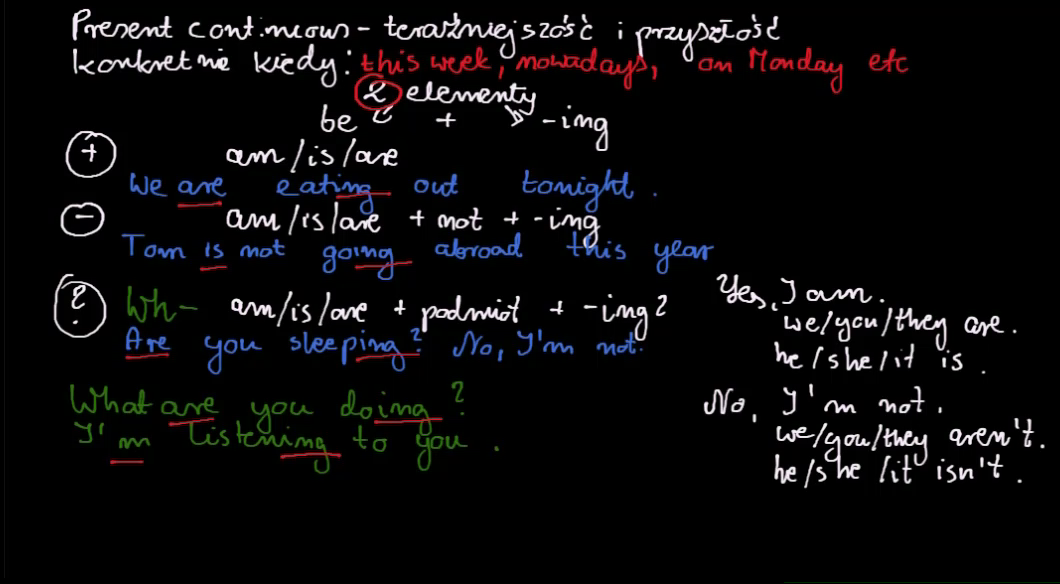 Present continuous - teraźniejszość i przyszłość
konkretnie kiedy: this week, nowadays, on Monday etc
2 elementy
be + -ing
+ am/is/are
We are eating out tonight.
- am/is/are + not + -ing
Tom is not going abroad this year
? Wh- am/is/are + podmiot + -ing?
Are you sleeping? No, I'm not.
What are you doing?
I'm listening to you.
Yes, I am.
we/you/they are.
he/she/it is.
No, I'm not.
we/you/they aren't.
he/she/it isn't.